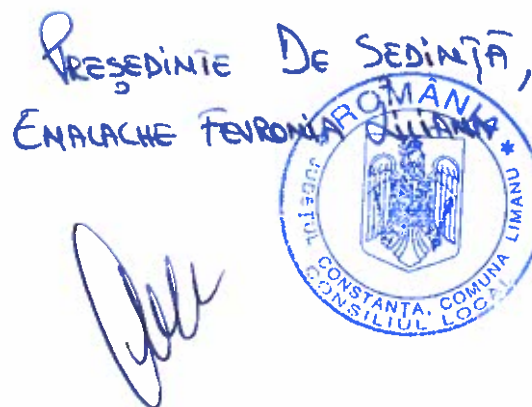 PREȘEDINTE DE ȘEDINȚĂ,
ENACACHE FEVRONIA LILIANA
ROMÂNIA *
JUDEȚUL
CONSTANȚA, COMUNA LIMANU
CONSILIUL LOCAL